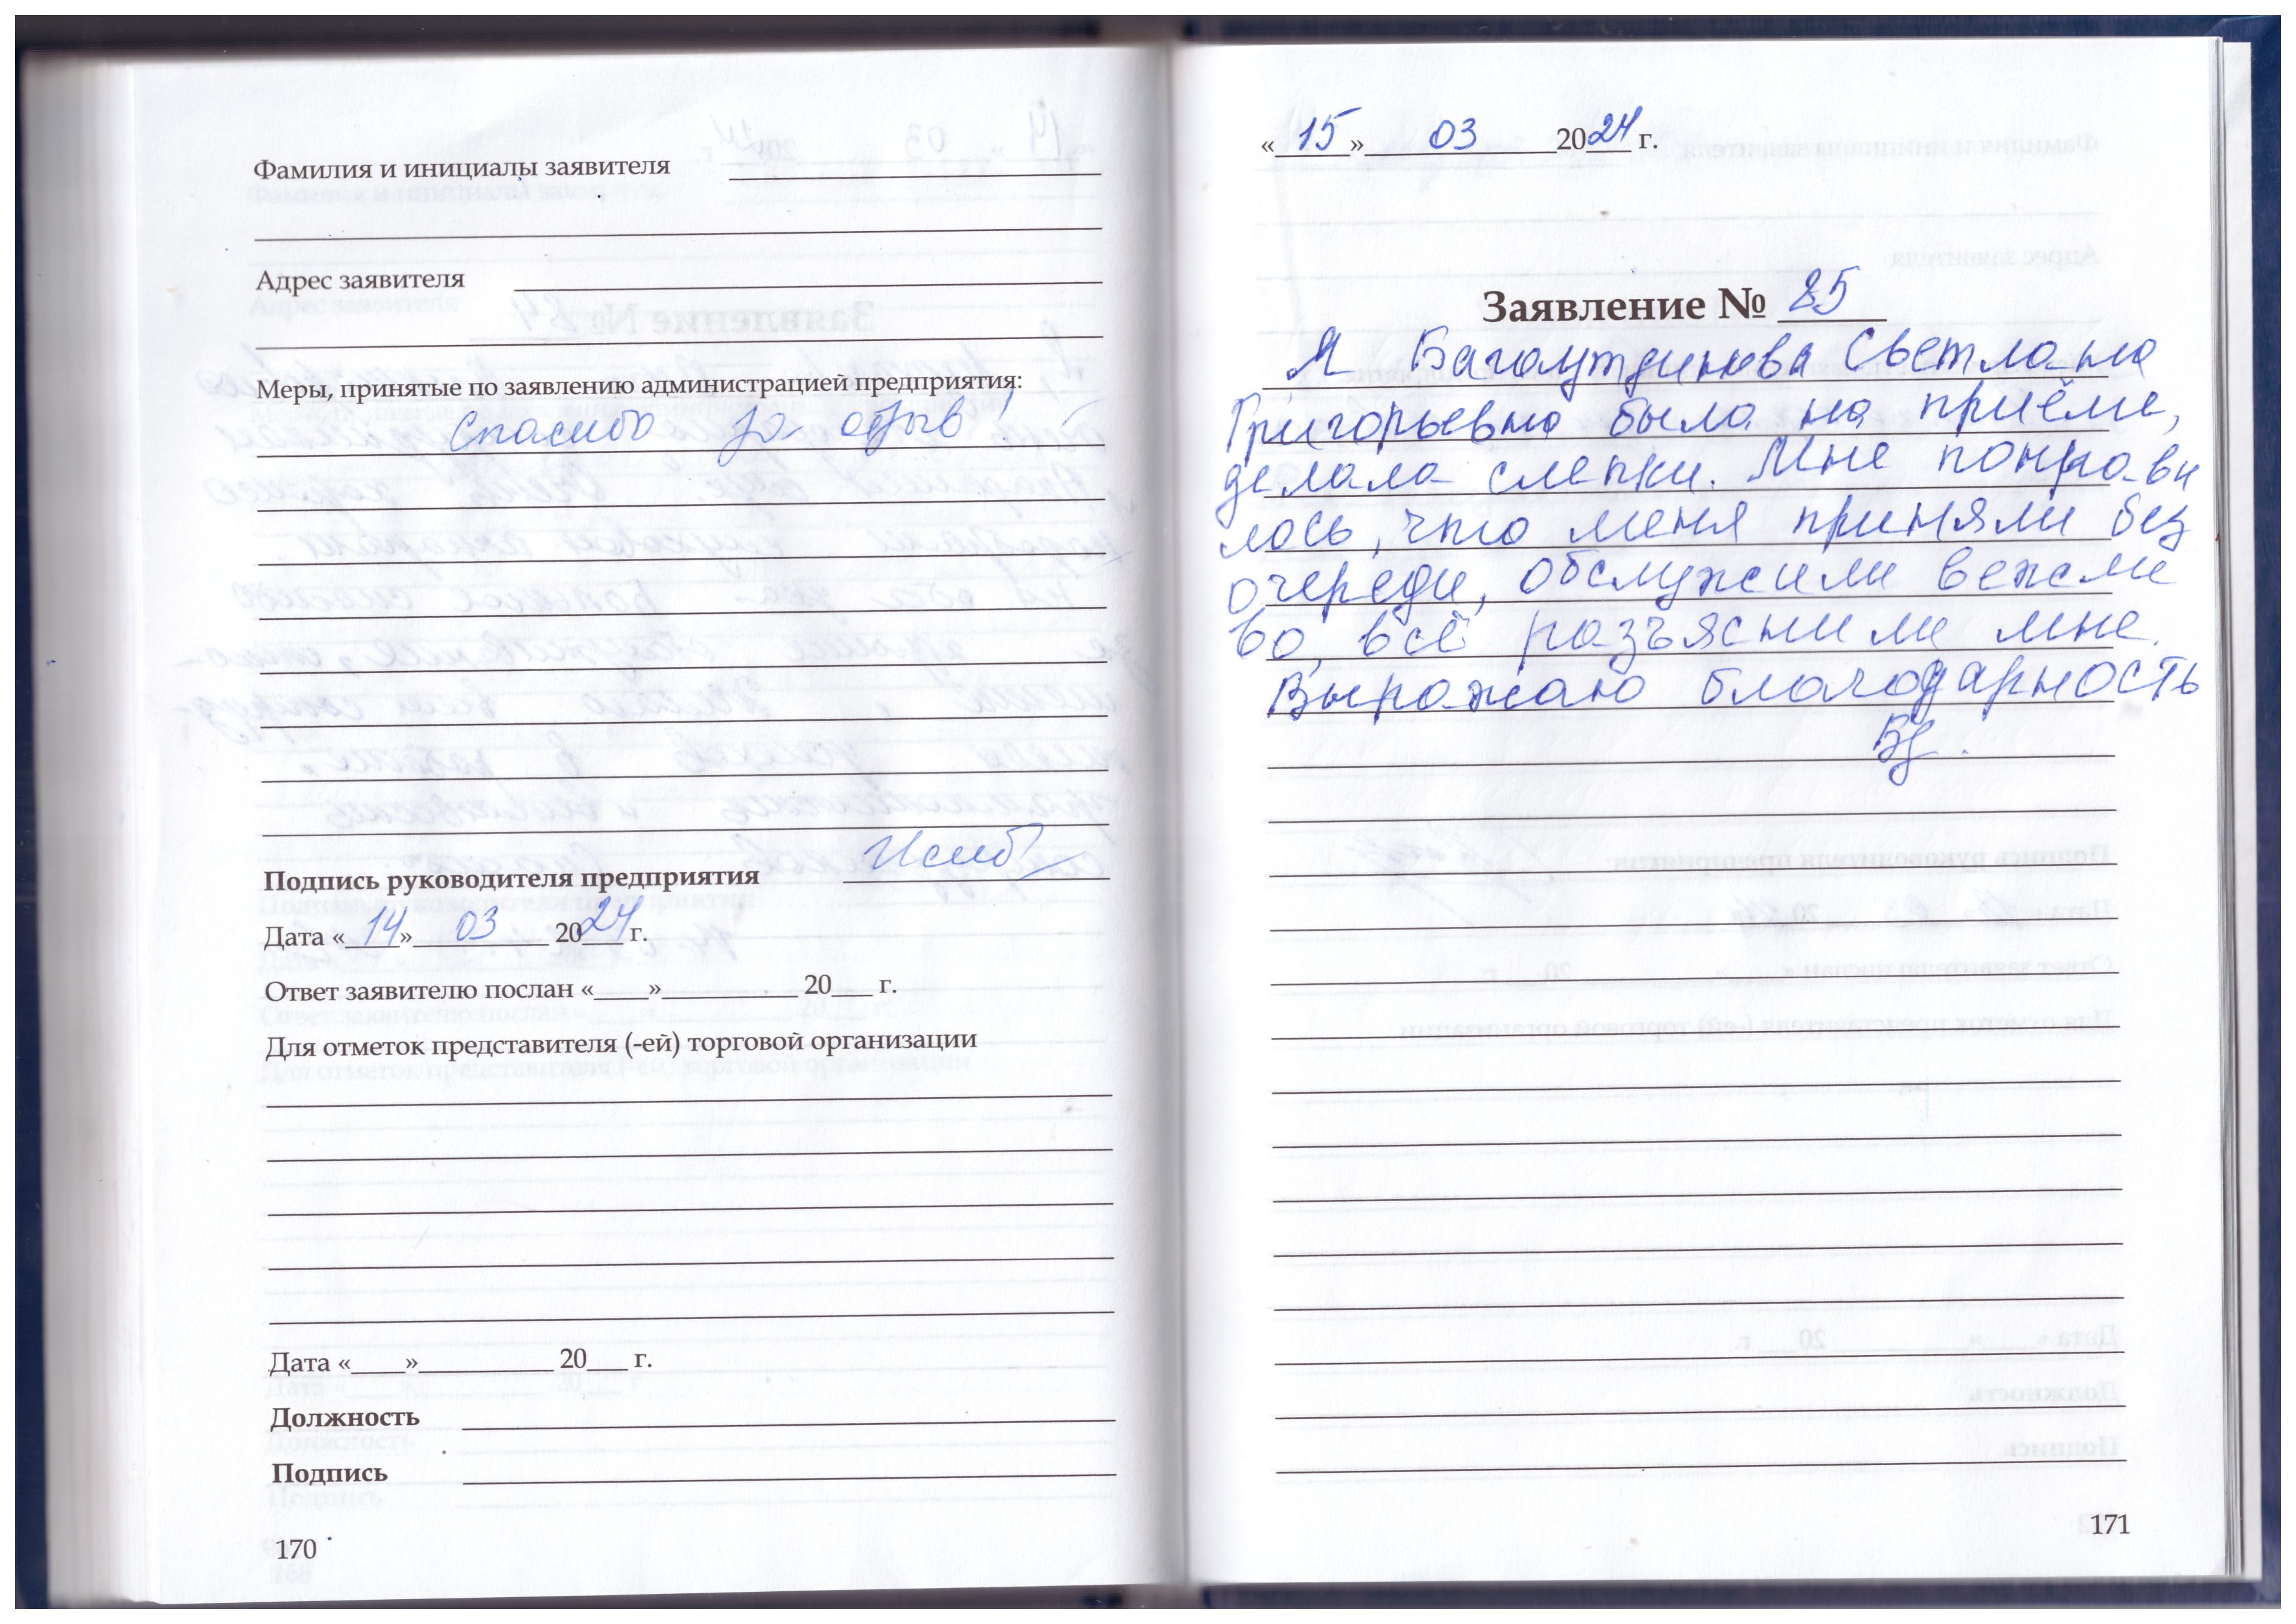 Фамилия и инициалы заявителя
Адрес заявителя
Меры, принятые по заявлению администрацией предприятия:
Спасибо за отзыв!
Подпись руководителя предприятия
Дата «14» 03 2024 г.
Ответ заявителю послан «____»__________ 20___ г.
Для отметок представителя (-ей) торговой организации
Дата «____»__________ 20___ г.
Должность
Подпись
170
«15» 03 2024 г.
Заявление № 85
Я Багаутдинова Светлана
Григорьевна была на приёме,
делала слепки. Мне понрави
лось, что меня приняли без
очереди, обслужили вежли
во, всё разъяснили мне.
Выражаю благодарность
171